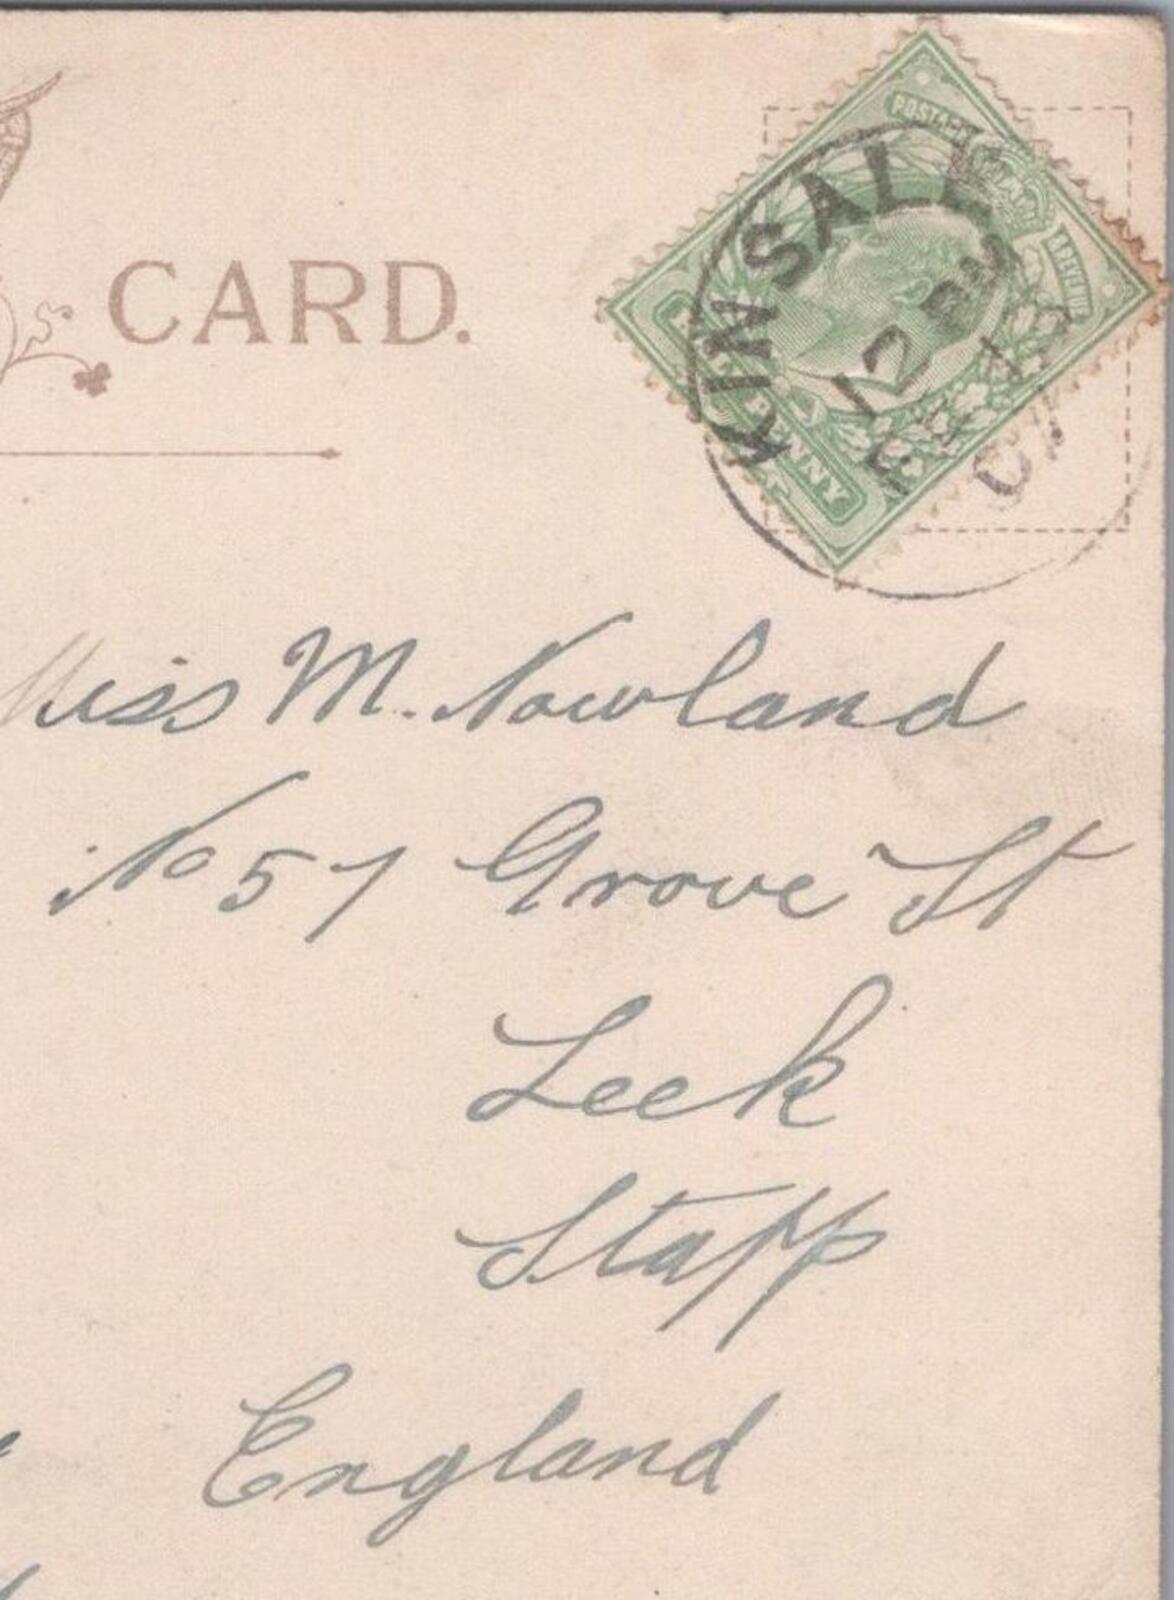 CARD.
POSTAGE & REVENUE
HALFPENNY
KINSALE
12 PM
FE 12
07
Miss M. Nowland
No 57 Grove St
Leek
Staff
England